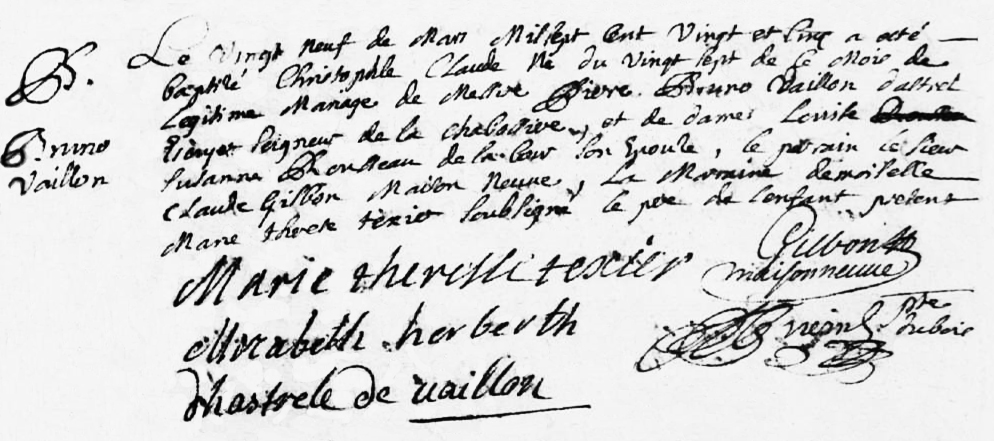 B.
Bruno
Vaillon
Le Vingt neuf de Mars Mil sept cent Vingt et Cinq a esté
baptisé Christophle Claude Né du Vingt sept de ce Mois de
Legitime Mariage de Messire Pierre Bruno Vaillon d'astrel
Escuyer Seigneur de la Chabossiere, et de dame Louise
Susanne Rousseau de la Cour Son Epouse, le parain le Sieur
Claude Gilbon Maison Neuve, La Maraine demoiselle
Marie therese texier Soubsigné le pere de l'enfant present
Marie theresse texier
Gilbon
maisonneuve
Elizabeth herberth
ptre
dhastrele de vaillon